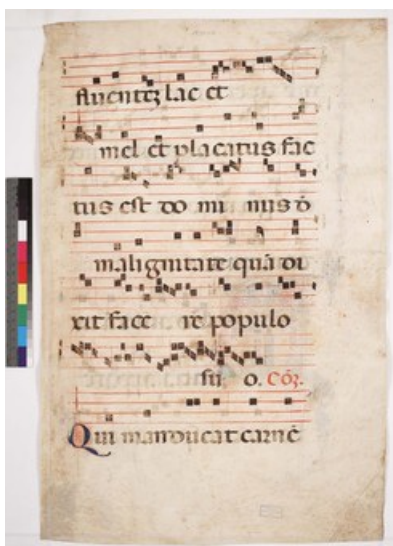 fluentē lac et
mel et placatus fac
tus est do mi nus d̄
malignitate quā di
xit face re populo
su o. Cōȝ.
Qui manducat carnē